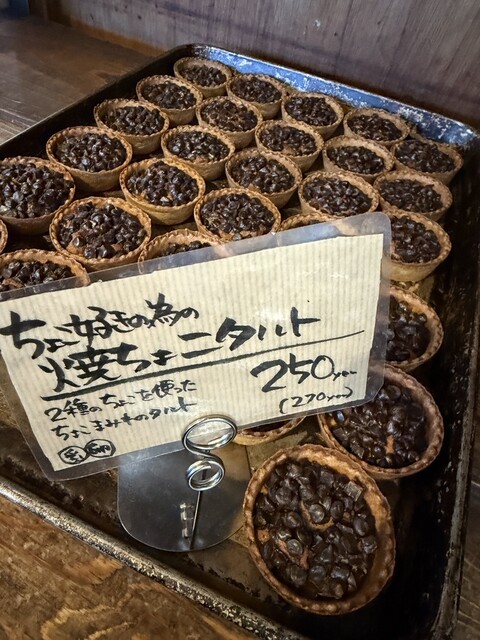 ちょこ好きの為の
焼ちょこニタルト
250yen
(270yen)
2種のちょこを使った
ちょこまみれのタルト